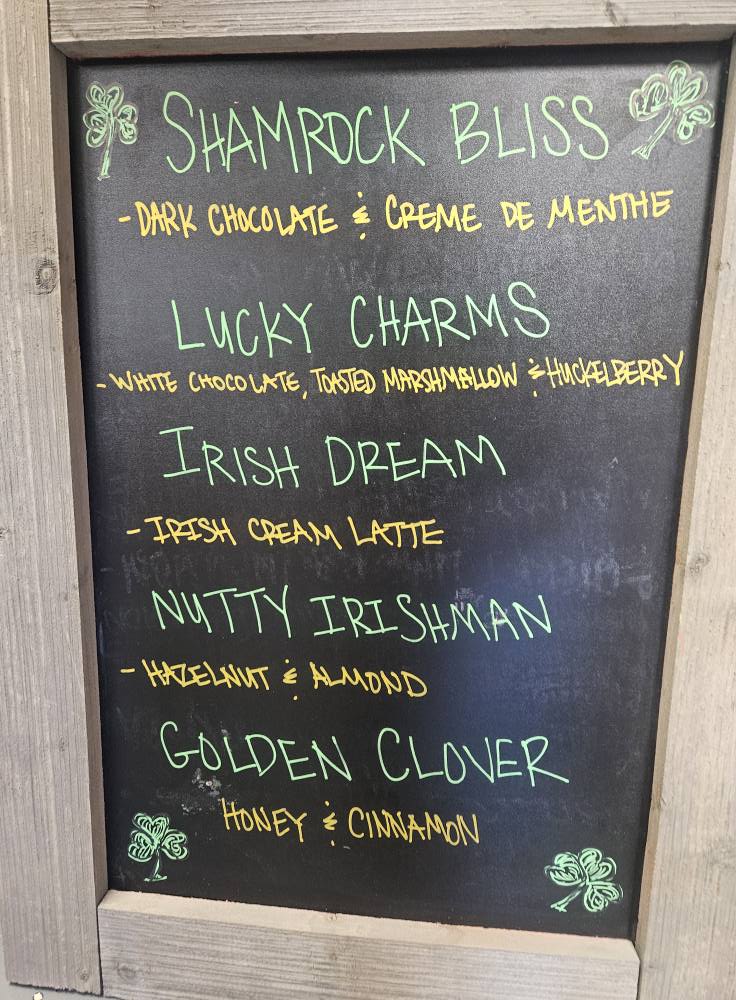 SHAMROCK BLISS
- DARK CHOCOLATE & CREME DE MENTHE
LUCKY CHARMS
- WHITE CHOCOLATE, TOASTED MARSHMALLOW & HUCKELBERRY
IRISH DREAM
- IRISH CREAM LATTE
NUTTY IRISHMAN
- HAZELNUT & ALMOND
GOLDEN CLOVER
HONEY & CINNAMON